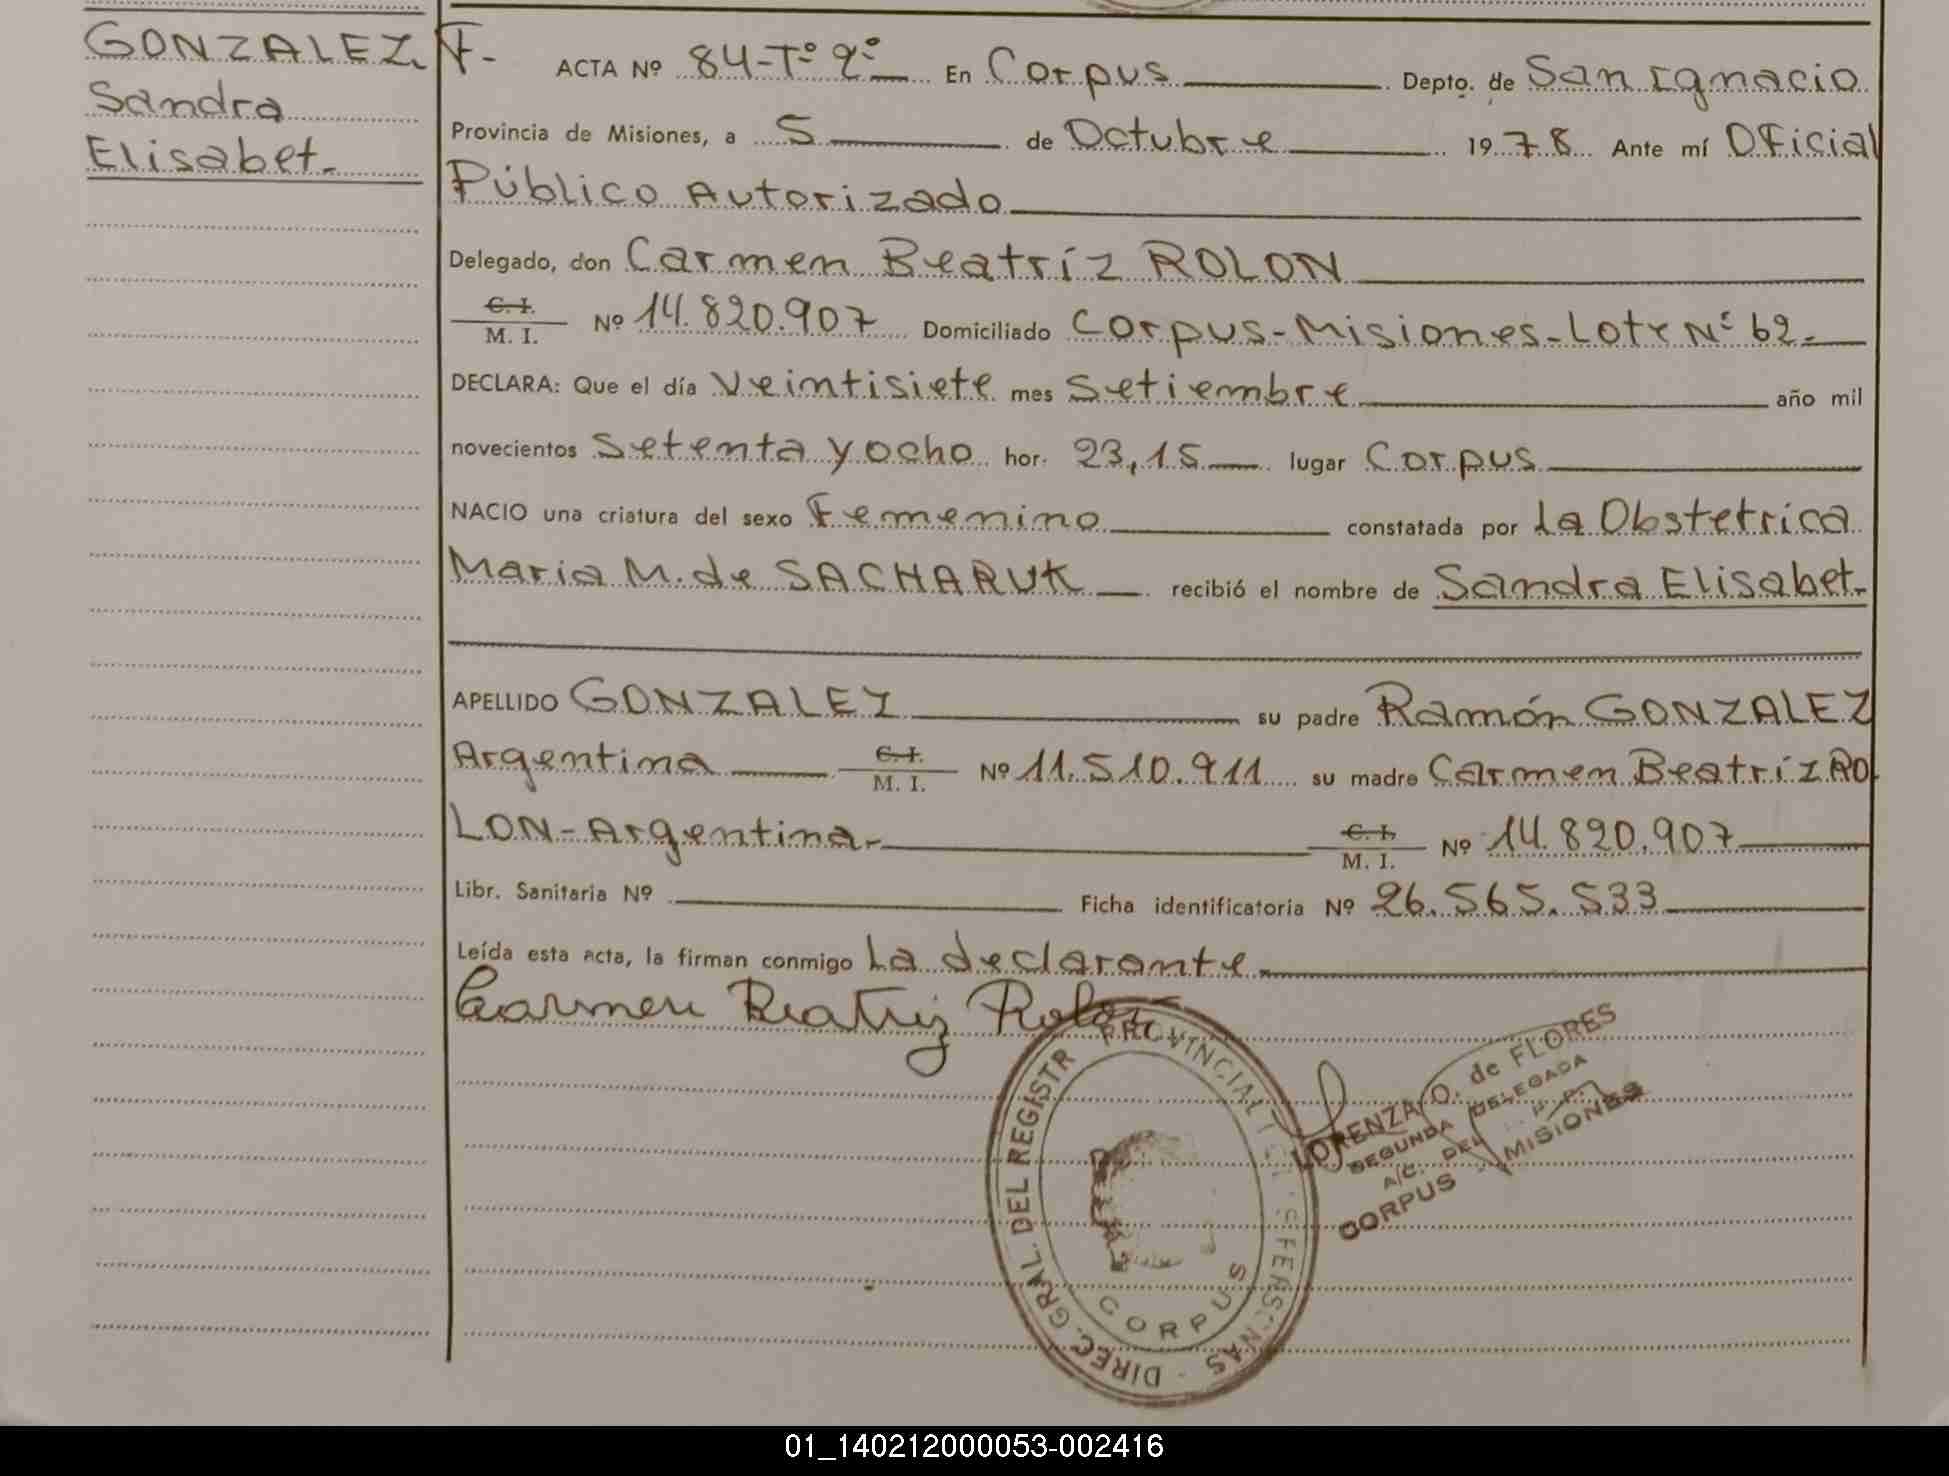 GONZALEZ,
Sandra
Elisabet.-
F.-
ACTA Nº 84-Tº 2º En Corpus Depto. de San Ignacio
Provincia de Misiones, a 5 de Octubre 1978 Ante mí Oficial
Público Autorizado
Delegado, don Carmen Beatríz ROLON
C. I.
M. I. Nº 14.820.907 Domiciliado Corpus-Misiones-Lote Nº 62.-
DECLARA: Que el día Veintisiete mes Setiembre año mil
novecientos Setenta y ocho hor. 23,15 lugar Corpus
NACIO una criatura del sexo Femenino constatada por La Obstetrica
Maria M. de SACHARUK recibió el nombre de Sandra Elisabet.-
APELLIDO GONZALEZ su padre Ramón GONZALEZ
Argentina C. I. M. I. Nº 11.510.911 su madre Carmen Beatríz RO
LON-Argentina.- C. I. M. I. Nº 14.820.907
Libr. Sanitaria Nº Ficha identificatoria Nº 26.565.533
Leída esta acta, la firman conmigo La declarante
Carmen Beatriz Rolon
DIREC. GRAL. DEL REGISTR PROVINCIAL
CORPUS
LORENZA O. de FLORES
SEGUNDA DELEGADA
A/C. DEL
CORPUS - MISIONES
01_140212000053-002416